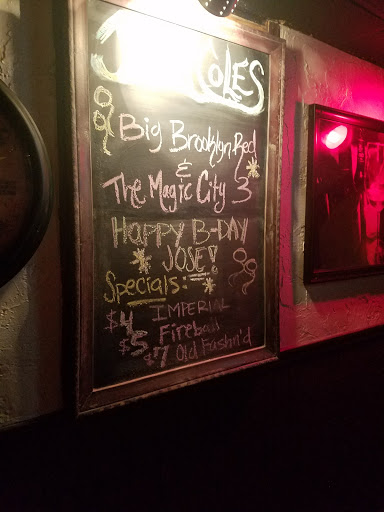 COLES
Big Brooklyn Red
&
The Magic City 3
HAPPY B-DAY
JOSE!
Specials:
$4 IMPERIAL
$5 Fireball
$7 Old Fashn'd